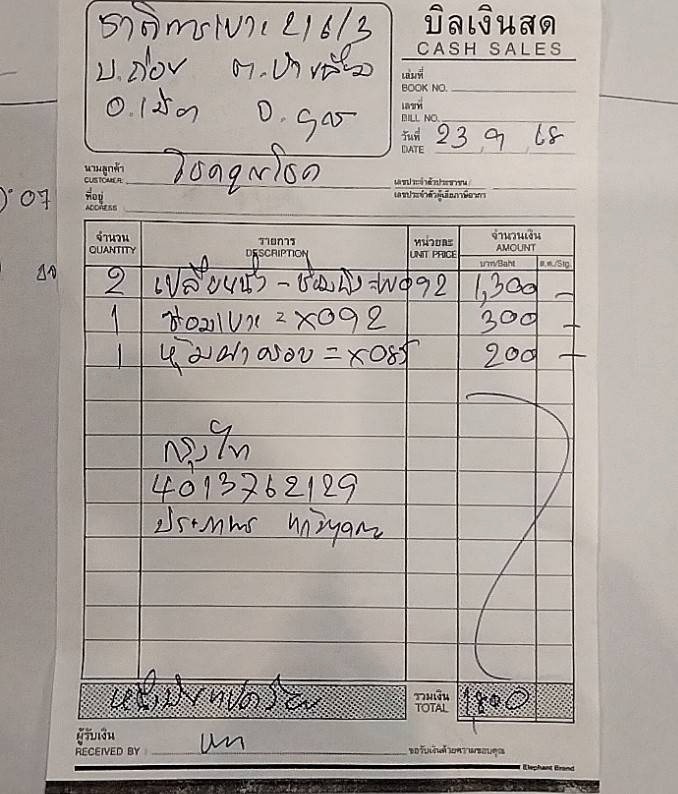 ชาติการเบาะ 216/3
บ.ถ่อน
อ.เมือง จ.อุดร
บิลเงินสด
CASH SALES
เล่มที่
BOOK NO.
เลขที่
BILL NO.
วันที่ 23 9 68
DATE
นามลูกค้า โชคคูณโชค
CUSTOMER
เลขประจำตัวประชาชน/
เลขประจำตัวผู้เสียภาษีอากร
ที่อยู่
ADDRESS
07
จำนวน รายการ หน่วยละ จำนวนเงิน
QUANTITY DESCRIPTION UNIT PRICE AMOUNT
บาท/Baht ส.ต./Stg.
2 เปลี่ยนผ้า - 092 1,300 -
1 ซ่อมเบาะ = X092 300 -
1 หุ้มฝาครอบ = X085 200 -
กรุงไทย
4013762129
รวมเงิน 1800
TOTAL
ผู้รับเงิน
RECEIVED BY
ขอรับเงินด้วยความขอบคุณ
Elephant Brand